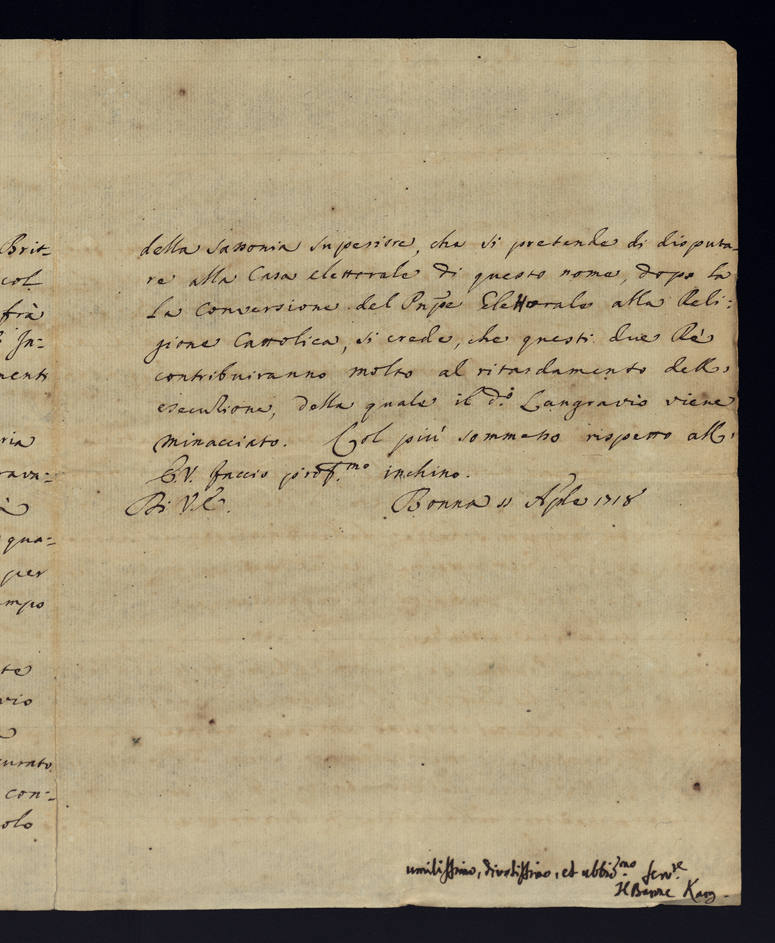 Brit-
col
frà
In-
menti
ria
qua-
per
empo
te
vio
curato
con-
olo
della Sassonia Superiore, che si pretende di disputa
re alla Casa elettorale di questo nome, dopo la
la Conversione del Pnpe Elettorale alla Reli:
gione Cattolica, si crede, che questi due Rè
contribuiranno molto al ritardamento dell'
esecutione, della quale il do Langravio viene
minacciato. Col più sommesso rispetto all'
E.V. faccio profmo inchino.
Di V.E. Bonna 11 Aple 1718
umilissimo, divotissimo, et obbmo serve
Il Barne Karg